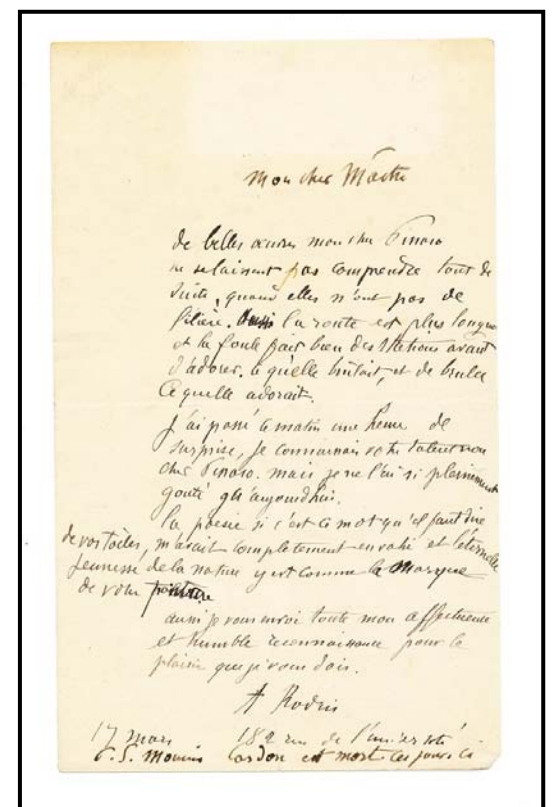 Mon cher Maître
de belles œuvres mon cher Pissaro
ne se laissent pas comprendre tout de
suite, quand elles n'ont pas de
filière. la route est plus longue
et la foule fait bien des stations avant
d'adorer ce qu'elle brulait, et de bruler
ce quelle adorait.
J'ai passé ce matin une heure de
surprise, je connaissais votre talent mon
cher Pissaro. mais je ne l'ai si pleinement
gouté qu'aujourdhui.
la poesie si c'est ce mot qu'il faut dire
de vos toiles, m'avait completement envahi et l'éternelle
jeunesse de la nature y est comme la Marque
de votre
aussi je vous envoi toute mon affectueuse
et humble reconnaissance pour le
plaisir que je vous dois.
A Rodin
17 mars 182 rue de l'université
P.S. Cardon est mort ces jours ci